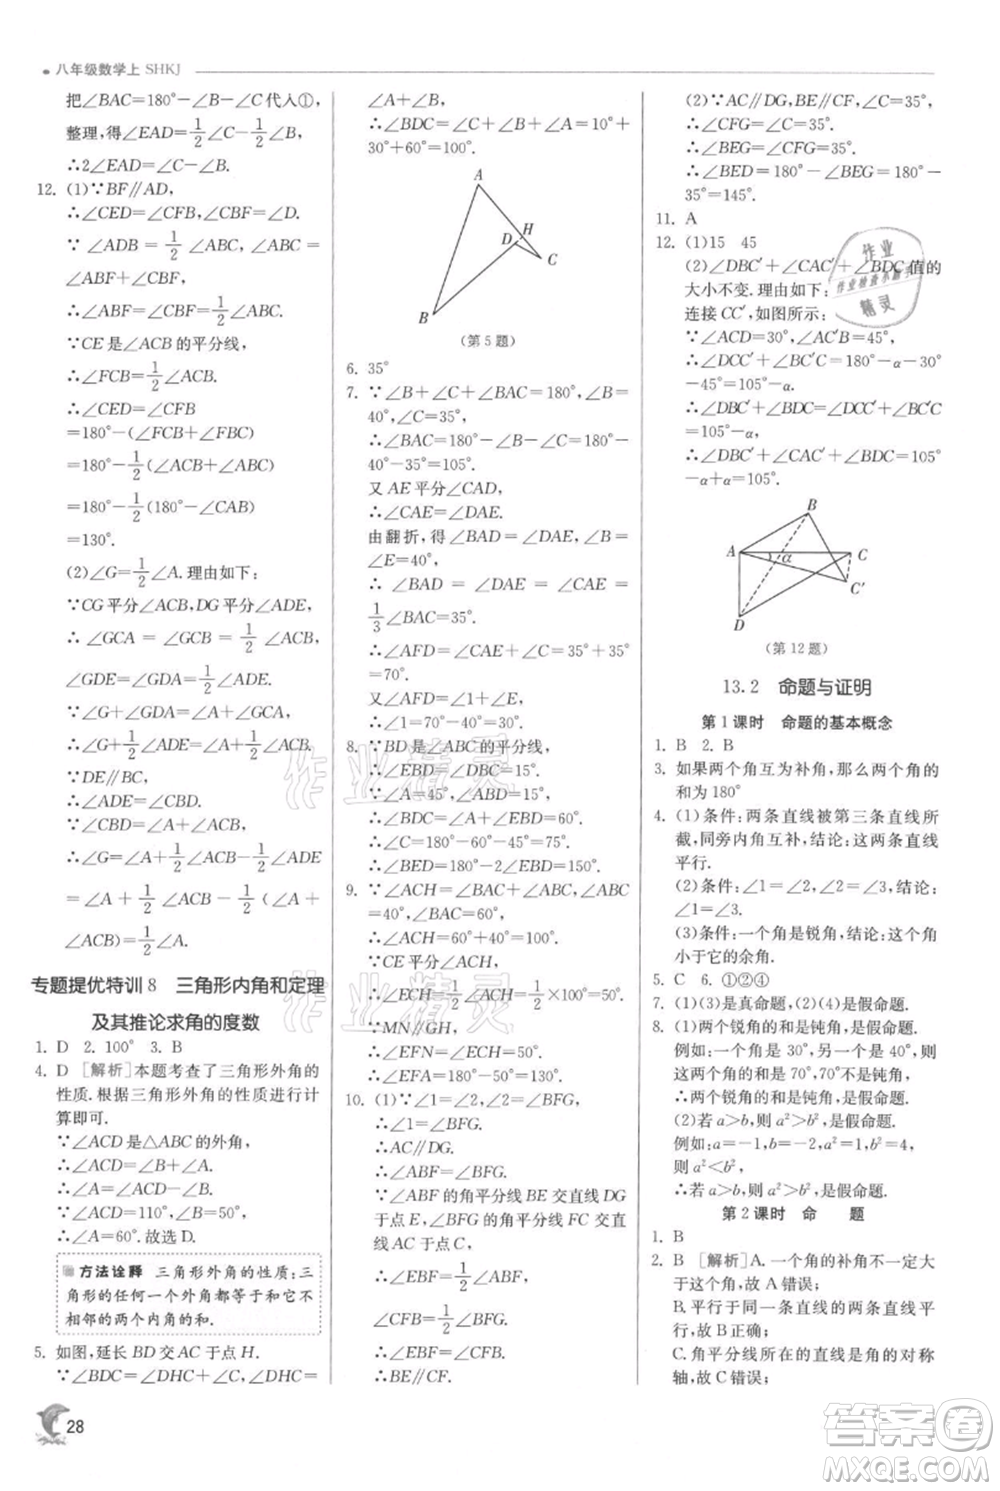 八年级数学上 SHKJ
把∠BAC=180°-∠B-∠C代入①,
整理,得∠EAD=1/2∠C-1/2∠B,
∴2∠EAD=∠C-∠B.
12. (1)∵BF∥AD,
∴∠CED=∠CFB,∠CBF=∠D.
∵∠ADB=1/2∠ABC=∠CBF=
∠ABF+∠ABC,
∴∠ABF=∠CBF-∠ABC=1/2∠ABC-∠ABC
∵CE是∠ACB的平分线,
∴∠FCB=1/2∠ACB,
∴∠CED=∠CFB
=180°-∠FCB-∠CBF
=180°-1/2(∠ACB+∠ABC)
=180°-1/2(180°-∠CAB)
=130°.
(2)∠G=1/2∠A.理由如下:
∵CG平分∠ACB,DG平分∠ADE,
∴∠GCA=∠GCB=1/2∠ACB,
∠GDE=1/2∠ADE.
∴∠G+∠GDA=∠A+∠GCA,
∴∠G+1/2∠ADE=∠A+1/2∠ACB.
∵DE∥BC,
∴∠ADE=∠CBD.
∵∠CBD=∠A+∠ACB,
∴∠G=∠A+1/2∠ACB-1/2(∠A+
∠ACB)=1/2∠A.
专题提优特训8 三角形内角和定理
及其推论求角的度数
1. D 2. 100° 3. B
4. D [解析]本题考查了三角形外角的
性质.根据三角形外角的性质进行计
算即可.
∵∠ACD是△ABC的外角,
∴∠ACD=∠B+∠A.
∵∠ACD=110°,∠B=50°,
∴∠A=60°.故选D.
方法诠释 三角形外角的性质:三
角形的任何一个外角都等于和它不
相邻的两个内角的和.
5. 如图,延长BD交AC于点H.
∵∠BDC=∠DHC+∠C,∠DHC=
28
∠A+∠B,
∴∠BDC=∠C+∠B+∠A=10°+
30°+60°=100°.
A
H
D
C
B
(第5题)
6. 35°
7. ∵∠B+∠C+∠BAC=180°,∠B=
40°,∠C=35°,
∴∠BAC=180°-∠B-∠C=180°-
40°-35°=105°.
又AE平分∠CAD,
∴∠CAE=∠DAE.
由翻折,得∠BAD=∠DAE,∠B=
∠E=40°,
∴∠BAD=∠DAE=∠CAE=
1/3∠BAC=35°.
∴∠AFD=∠CAE+∠C=35°+35°
=70°.
又∠AFD=∠1+∠E,
∴∠1=70°-40°=30°.
8. ∵BD是∠ABC的平分线,
∴∠EBD=∠DBC=15°.
∵∠A=45°,∠ABD=15°,
∴∠BDC=∠A+∠EBD=60°.
∴∠C=180°-60°-45°=75°.
∴∠BED=180°-2∠EBD=150°.
9. ∵∠ACH=∠BAC+∠ABC,∠ABC
=40°,∠BAC=60°,
∴∠ACH=100°.
∵CE平分∠ACH,
∴∠ECH=1/2∠ACH=1/2×100°=50°.
∵MN∥GH,
∴∠EFA=∠ECH=50°.
∴∠EFA=50°.
10. (1)∵∠1=∠2,∠2=∠BFG,
∴∠1=∠BFG.
∴AC∥DG.
∴∠ABF=∠BFG.
∵∠ABF的角平分线BE交直线DG
于点E,∠BFG的角平分线FC交直线
AC于点C,
∴∠EBF=1/2∠ABF,
∠CFB=1/2∠BFG.
∴∠EBF=∠CFB.
∴BE∥CF.
(2)∵AC∥DG,BE∥CF,∠C=35°,
∴∠CFG=∠C=35°.
∴∠BEG=∠CFG=35°.
∴∠BED=180°-∠BEG=180°-
35°=145°.
11. A
12. (1)15 45
(2)∠DBC′+∠CAC′+∠BDC值的
大小不变.理由如下:
连接CC′,如图所示:
∵∠ACD=30°,∠AC′B=45°,
∴∠DCC′+∠BC′C=180°-α-30°
-45°=105°-α.
∵∠DBC′+∠BDC=∠DCC′+∠BC′C
=105°-α,
∴∠DBC′+∠CAC′+∠BDC=105°
-α+α=105°.
B
A
α
C
C′
D
(第12题)
13.2 命题与证明
第1课时 命题的基本概念
1. B 2. B
3. 如果两个角互为补角,那么两个角的
和为180°
4. (1)条件:两条直线被第三条直线所
截,同旁内角互补,结论:这两条直线
平行.
(2)条件:∠1=∠2,∠2=∠3,结论:
∠1=∠3.
(3)条件:一个角是锐角,结论:这个角
小于它的余角.
5. C 6. ①②④
7. (1)(3)是真命题,(2)(4)是假命题.
8. (1)两个锐角的和是钝角,是假命题.
例如:一个角是30°,另一个角是40°,
则和是70°,70°不是钝角,
∴两个锐角的和是钝角是假命题.
(2)若a>b,则a²>b²,是假命题.
例如:a=-1,b=-2,a²=1,b²=4,
则a²<b²,
∴若a>b,则a²>b²是假命题.
第2课时 命 题
1. B
2. B [解析]A.一个角的补角不一定大
于这个角,故A错误;
B.平行于同一条直线的两条直线平
行,故B正确;
C.角平分线所在的直线是角的对称
轴,故C错误;
作业精灵
作业
作业检查小助手
精灵
答案卷
MXQE.COM